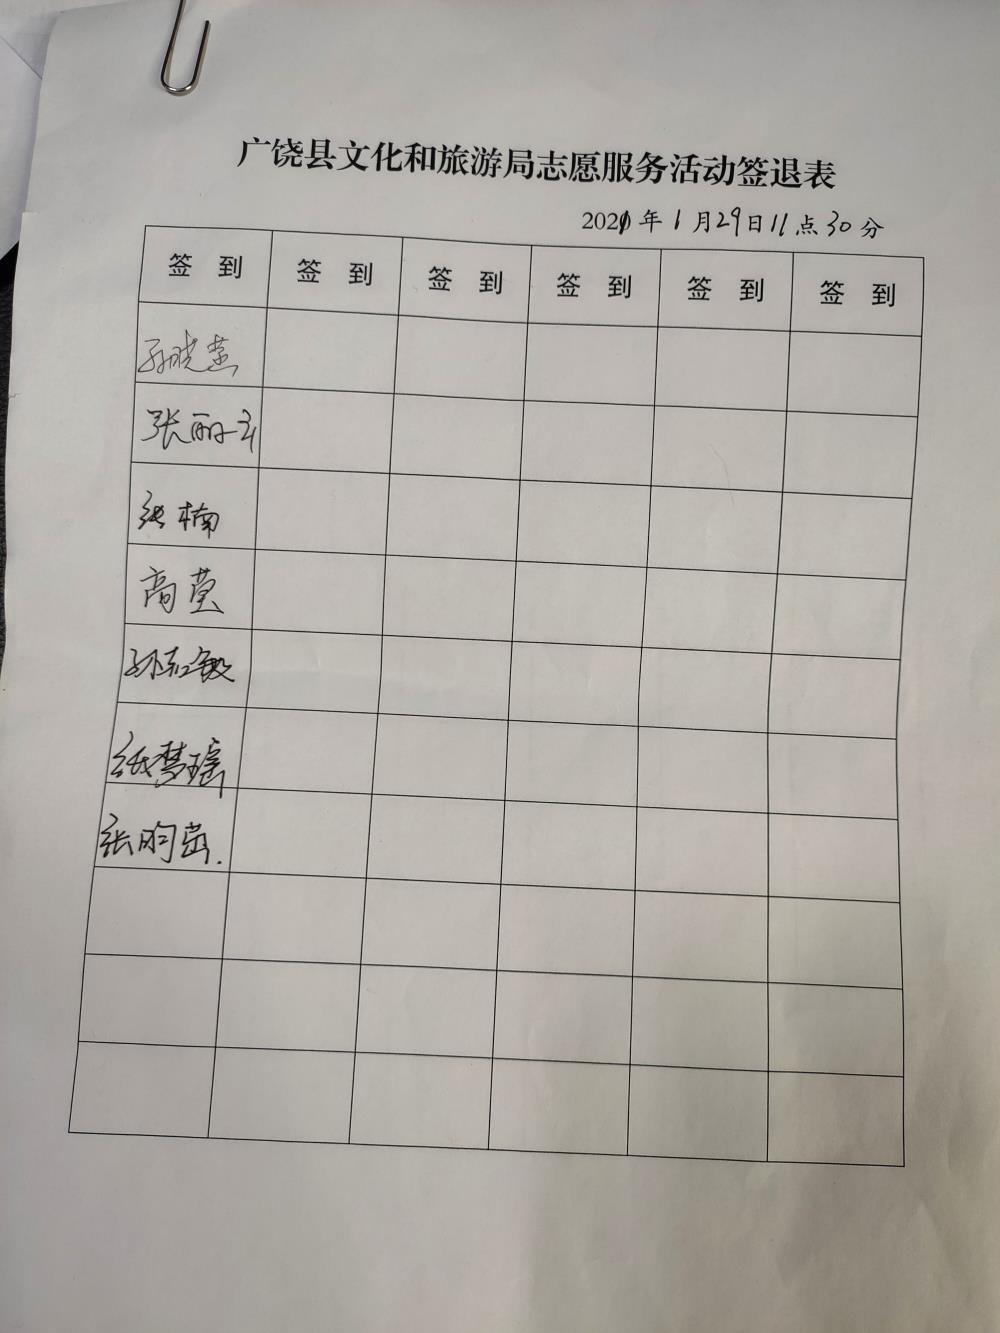 广饶县文化和旅游局志愿服务活动签退表
2021年1月29日11点30分
签 到 签 到 签 到 签 到 签 到 签 到
孙晓燕
张丽云
张楠
高莹
孙红敏
纸梦瑶
张昀茁.